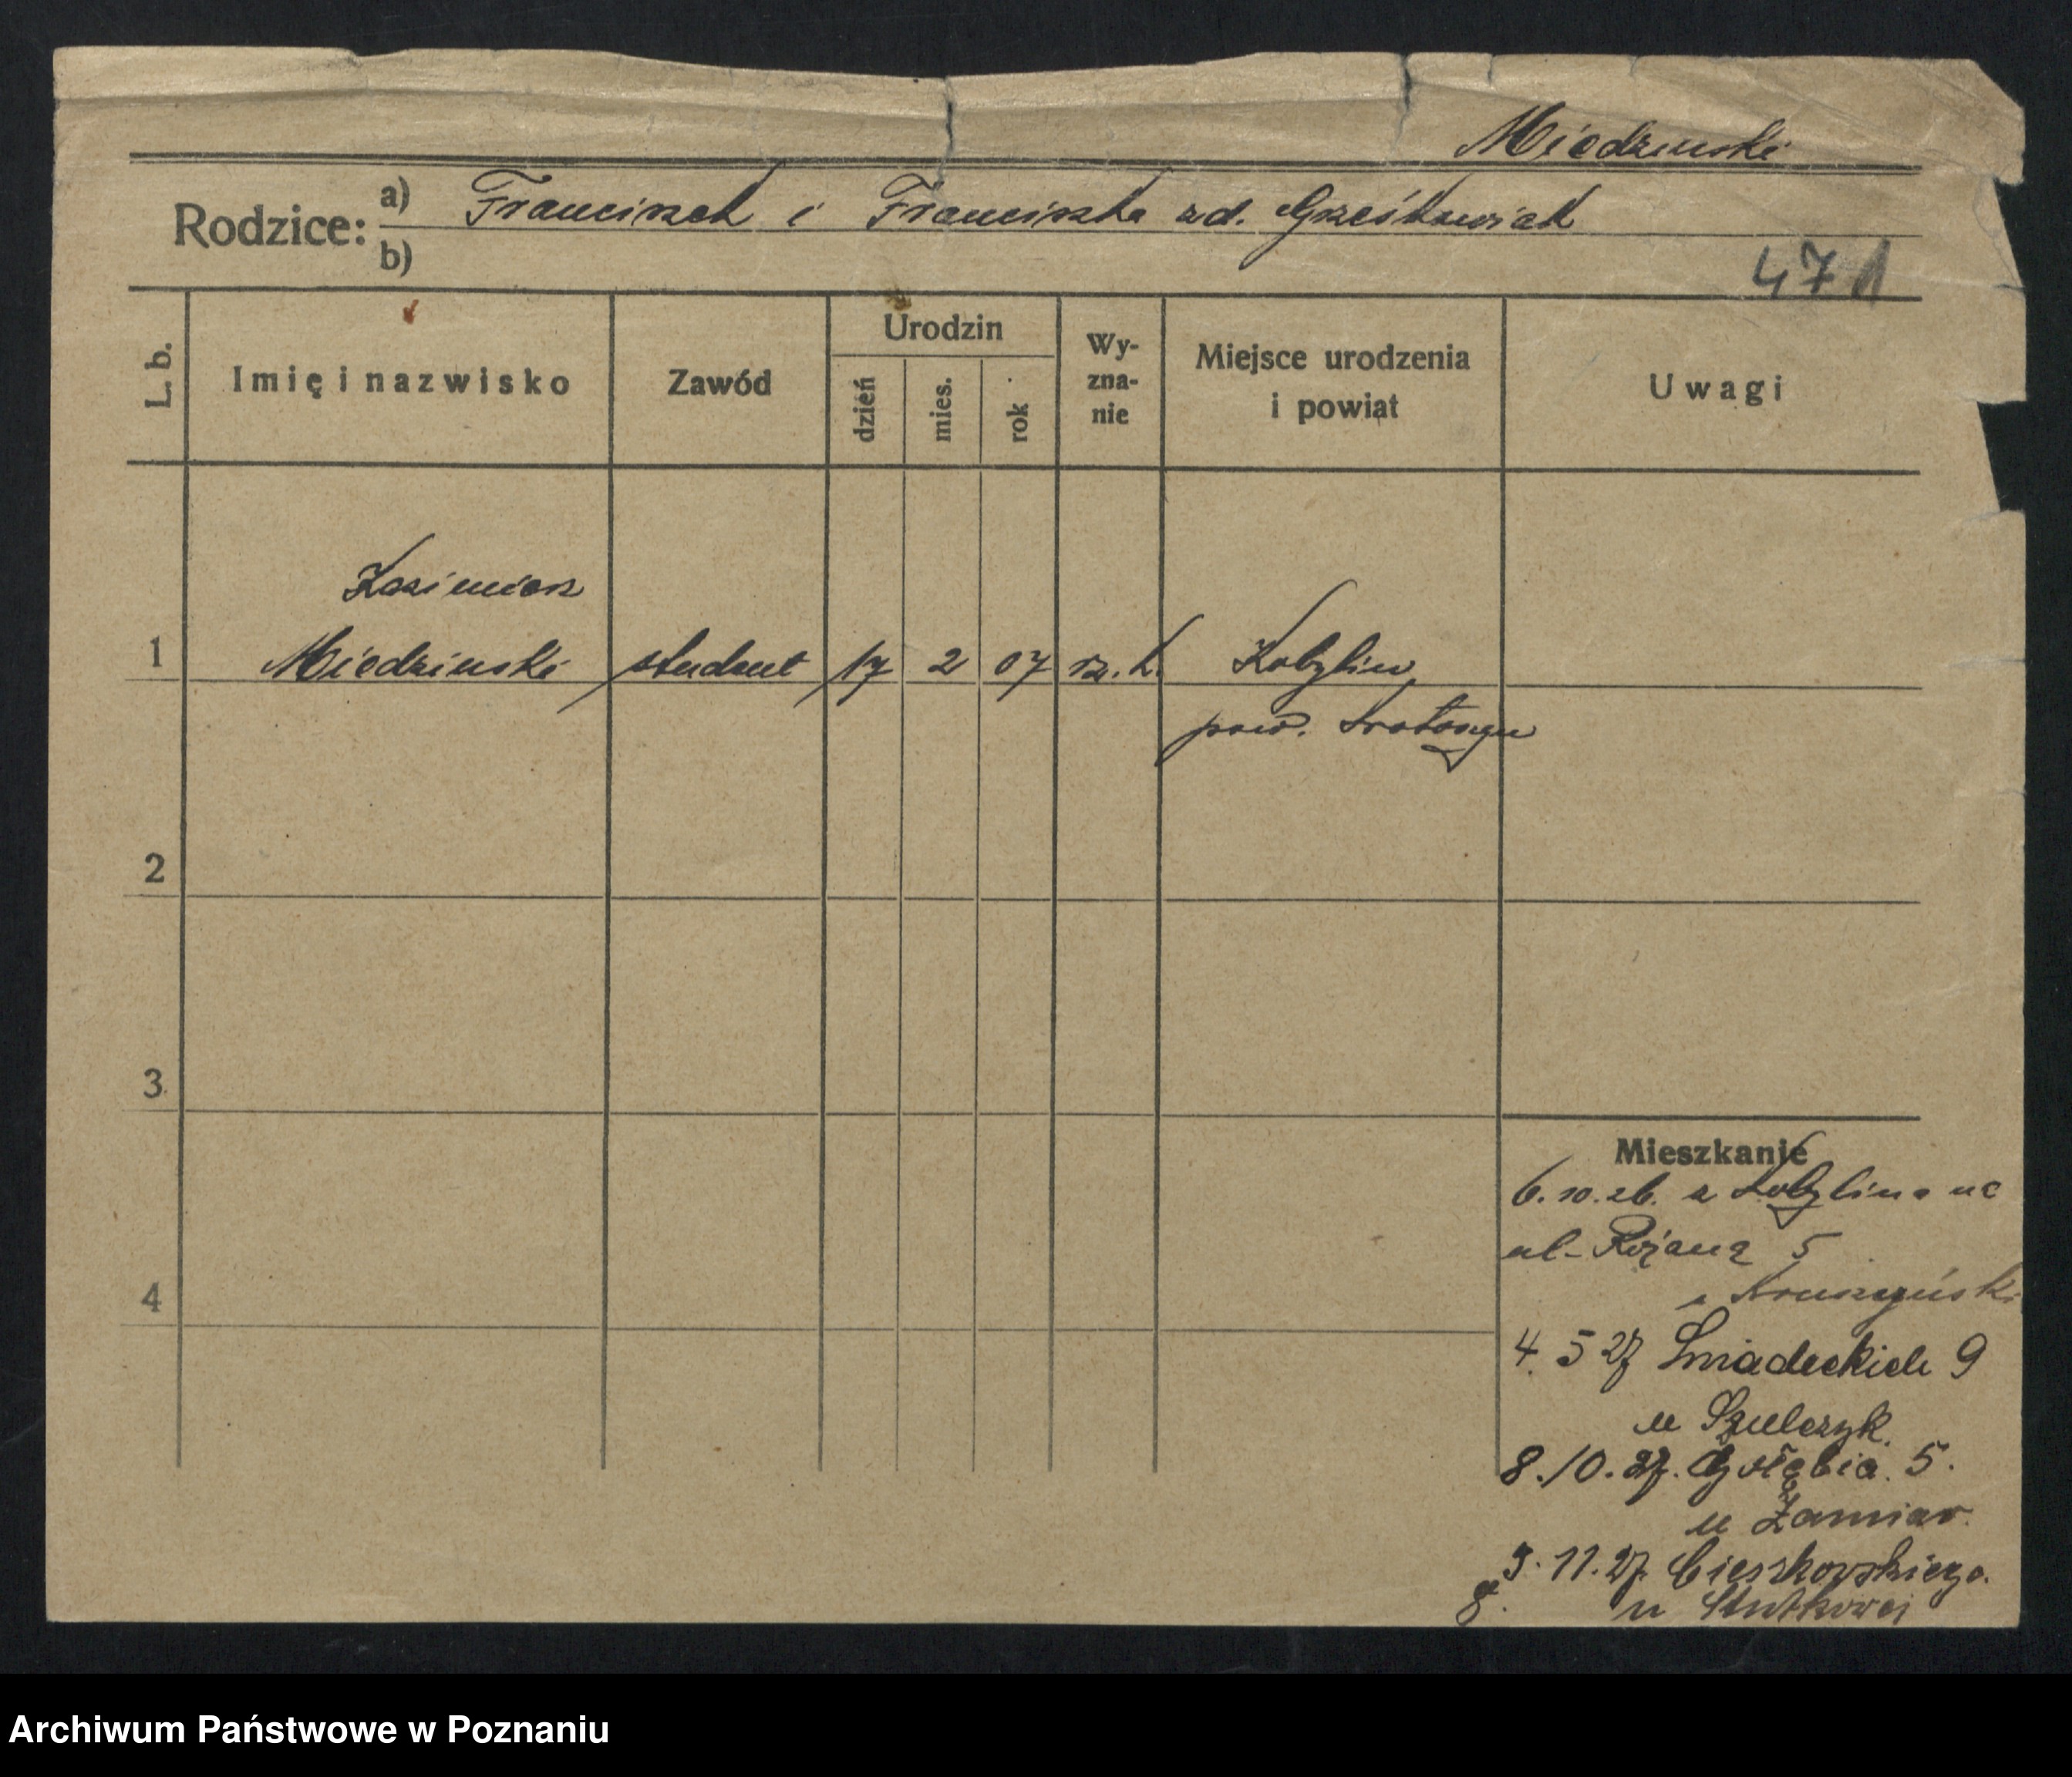 Miedzinski
Rodzice: a) Franciszek i Franciszka zd. Grześkowiak
b)
471
L. b.
Imię i nazwisko
Zawód
Urodzin
dzień
mies.
rok
Wy-
zna-
nie
Miejsce urodzenia
i powiat
Uwagi
Kazimierz
1 Miedzinski student 17 2 07 rz. k. Kobylin
pow. Krotoszyn
2
3
4
Mieszkanie
6. 10. 26. z Kobylina na
ul. Różaną 5
Kruszyński
4. 5 27 Śniadeckich 9
u Szulczyk.
8. 10. 27. Gołębia. 5.
u Zamiar.
11. 27. Cieszkowskiego.
8. u
Archiwum Państwowe w Poznaniu